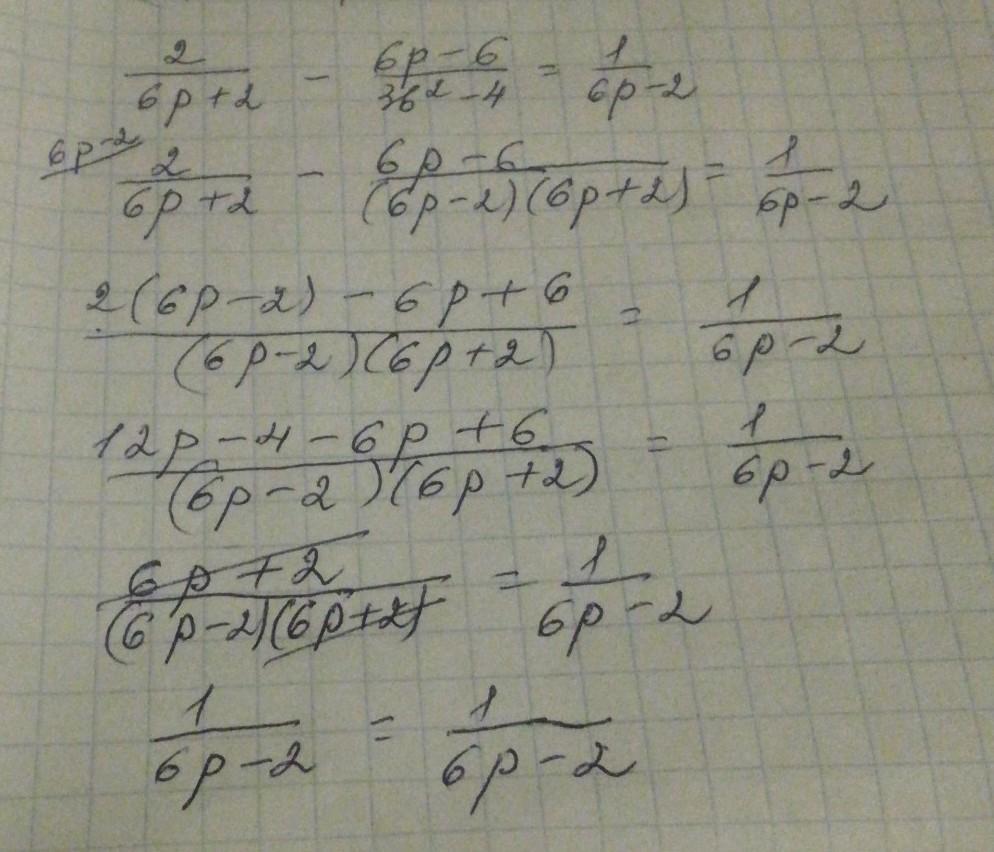 2/(6p+2) - (6p-6)/(36²-4) = 1/(6p-2)
6p-2 2/(6p+2) - (6p-6)/((6p-2)(6p+2)) = 1/(6p-2)
(2(6p-2)-6p+6)/((6p-2)(6p+2)) = 1/(6p-2)
(12p-4-6p+6)/((6p-2)(6p+2)) = 1/(6p-2)
(6p+2)/((6p-2)(6p+2)) = 1/(6p-2)
1/(6p-2) = 1/(6p-2)